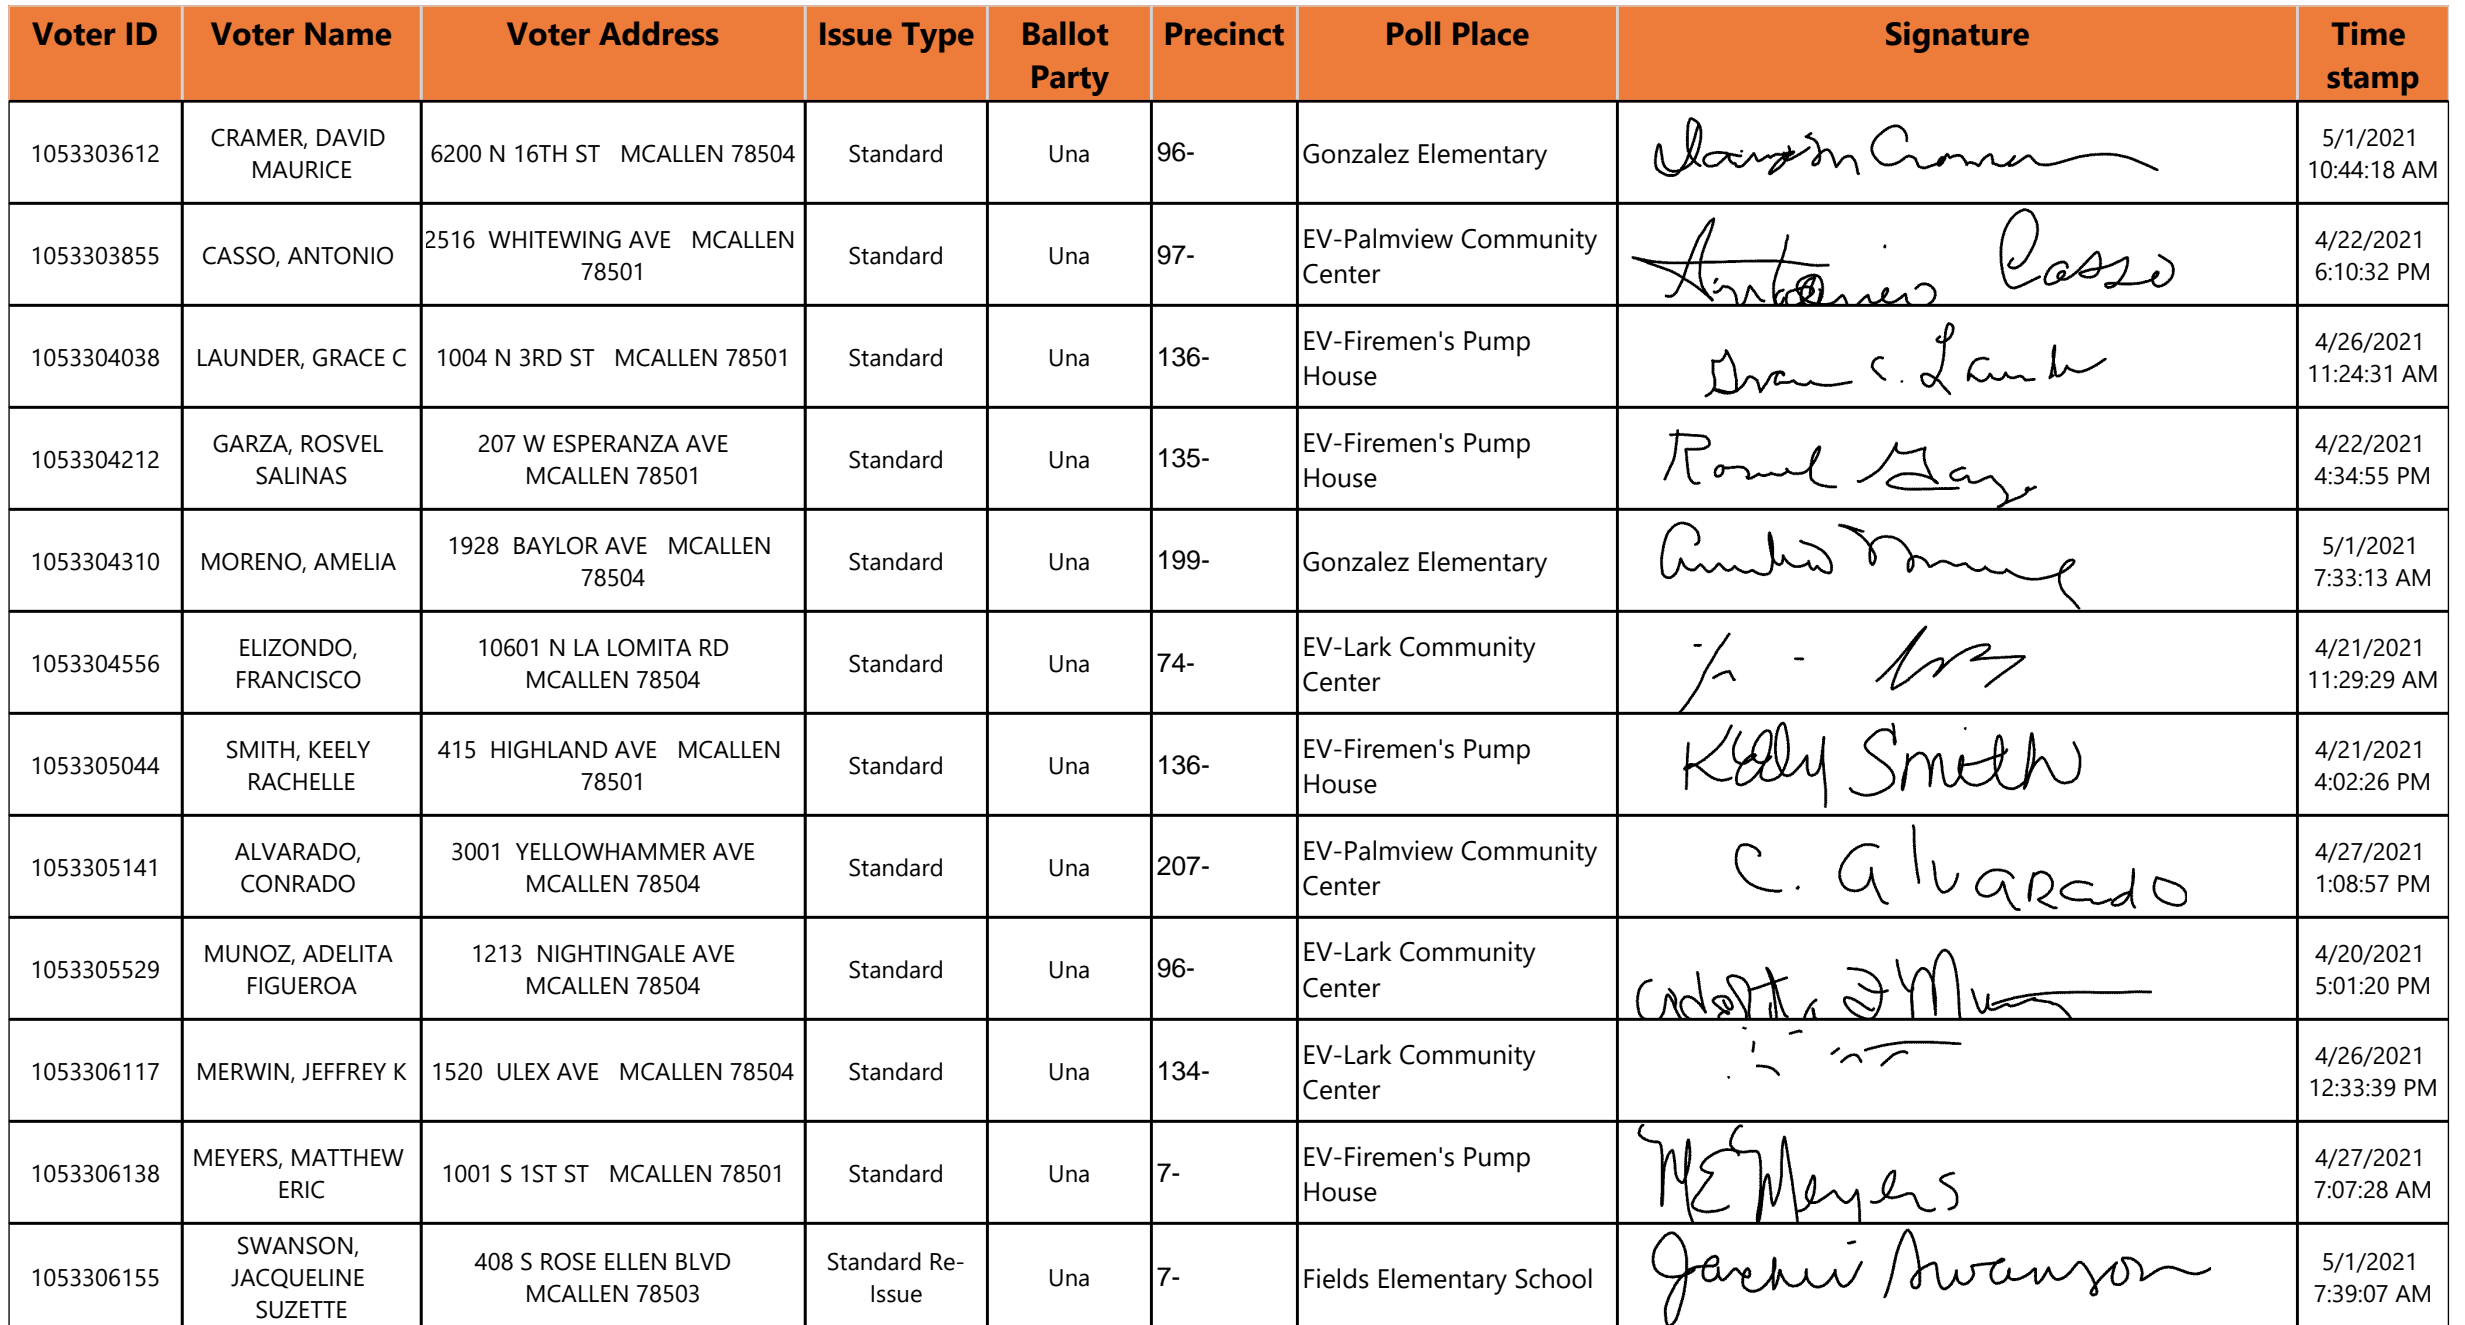 Voter ID Voter Name Voter Address Issue Type Ballot Party Precinct Poll Place Signature Time stamp
1053303612 CRAMER, DAVID MAURICE 6200 N 16TH ST MCALLEN 78504 Standard Una 96- Gonzalez Elementary 5/1/2021 10:44:18 AM
1053303855 CASSO, ANTONIO 2516 WHITEWING AVE MCALLEN 78501 Standard Una 97- EV-Palmview Community Center Antonio Casso 4/22/2021 6:10:32 PM
1053304038 LAUNDER, GRACE C 1004 N 3RD ST MCALLEN 78501 Standard Una 136- EV-Firemen's Pump House 4/26/2021 11:24:31 AM
1053304212 GARZA, ROSVEL SALINAS 207 W ESPERANZA AVE MCALLEN 78501 Standard Una 135- EV-Firemen's Pump House 4/22/2021 4:34:55 PM
1053304310 MORENO, AMELIA 1928 BAYLOR AVE MCALLEN 78504 Standard Una 199- Gonzalez Elementary 5/1/2021 7:33:13 AM
1053304556 ELIZONDO, FRANCISCO 10601 N LA LOMITA RD MCALLEN 78504 Standard Una 74- EV-Lark Community Center 4/21/2021 11:29:29 AM
1053305044 SMITH, KEELY RACHELLE 415 HIGHLAND AVE MCALLEN 78501 Standard Una 136- EV-Firemen's Pump House Keely Smith 4/21/2021 4:02:26 PM
1053305141 ALVARADO, CONRADO 3001 YELLOWHAMMER AVE MCALLEN 78504 Standard Una 207- EV-Palmview Community Center C. Alvarado 4/27/2021 1:08:57 PM
1053305529 MUNOZ, ADELITA FIGUEROA 1213 NIGHTINGALE AVE MCALLEN 78504 Standard Una 96- EV-Lark Community Center 4/20/2021 5:01:20 PM
1053306117 MERWIN, JEFFREY K 1520 ULEX AVE MCALLEN 78504 Standard Una 134- EV-Lark Community Center 4/26/2021 12:33:39 PM
1053306138 MEYERS, MATTHEW ERIC 1001 S 1ST ST MCALLEN 78501 Standard Una 7- EV-Firemen's Pump House ME Meyers 4/27/2021 7:07:28 AM
1053306155 SWANSON, JACQUELINE SUZETTE 408 S ROSE ELLEN BLVD MCALLEN 78503 Standard Re-Issue Una 7- Fields Elementary School Swanson 5/1/2021 7:39:07 AM